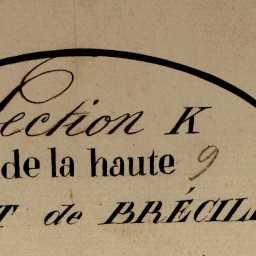 Section K
de la haute 9
T de BRÉCIL